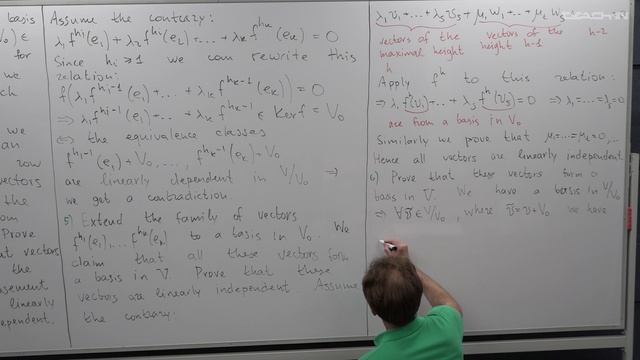 basis
for
we
an
row
vectors
the
vectors
the
linearly
ependent.
Assume the contrary:
λ₁f^{h₁}(e₁) + λ₂f^{h₂}(e₂) + ... + λₖf^{hₖ}(eₖ) = 0
Since hᵢ ≥ 1 we can rewrite this
relation:
f(λ₁f^{h₁-1}(e₁) + ... + λₖf^{hₖ-1}(eₖ)) = 0
⇒ λ₁f^{h₁-1}(e₁) + ... + λₖf^{hₖ-1}(eₖ) ∈ Ker f = V₀
⇔ the equivalence classes
f^{h₁-1}(e₁) + V₀, ..., f^{hₖ-1}(eₖ) + V₀
are linearly dependent in V/V₀ ⇒
we got a contradiction.
5) Extend the family of vectors
f^{h₁}(e₁)...f^{hₖ}(eₖ) to a basis in V₀. We
claim that all these vectors form
a basis in V. Prove that these
vectors are linearly independent. Assume
the contrary:
λ₁v₁ + ... + λₛvₛ + μ₁w₁ + ...
vectors of the vectors of the h-2
maximal height height h-1
h
Apply f^h to this relation:
⇒ λ₁f^h(v₁) + ... + λₛf^h(vₛ) = 0 ⇒ λ₁=...=λₛ=0
are from a basis in V₀
Similarly we prove that μ₁=...=0,...
Hence all vectors are linearly independent
6) Prove that these vectors form a
basis in V. We have a basis in V/V₀
⇒ ∀ v̄ ∈ V/V₀, where v̄ = v + V₀ we have